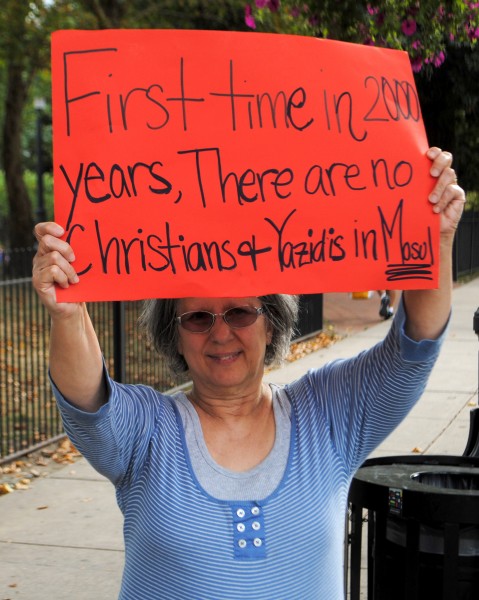 First time in 2000
years, There are no
Christians & Yazidis in Mosul